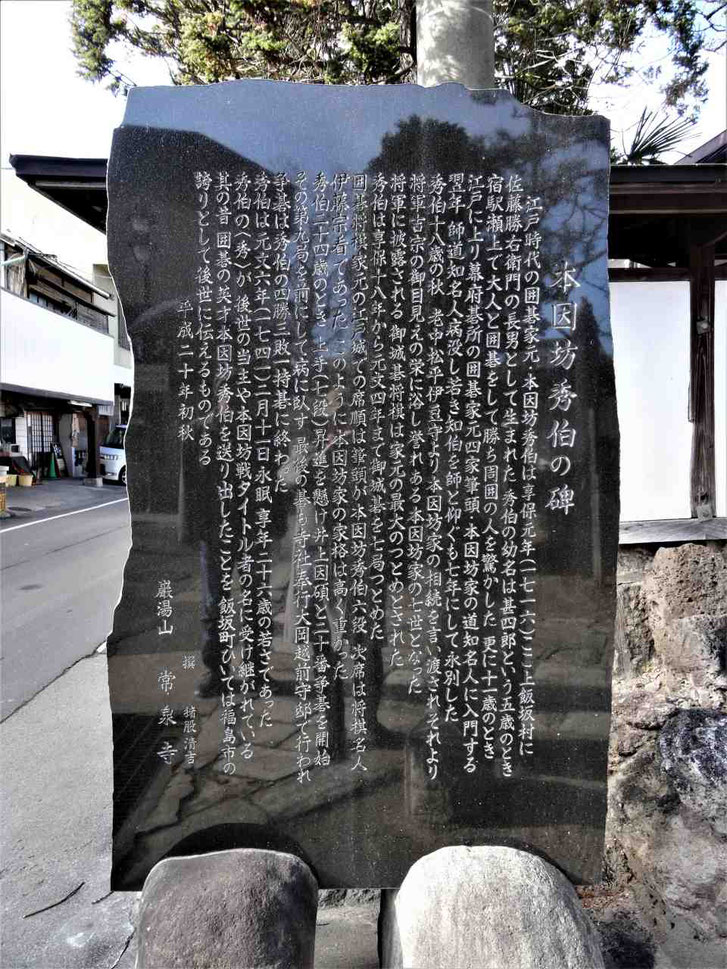 本因坊秀伯の碑
江戸時代の囲碁家元・本因坊秀伯は享保元年(一七一六)ここ上飯坂村に
佐藤勝右衛門の長男として生まれた 秀伯の幼名は甚四郎という五歳のとき
宿駅瀬上で大人と囲碁をして勝ち周囲の人を驚かした 更に十一歳のとき
江戸に上り幕府碁所の囲碁家元四家筆頭・本因坊家の道知名人に入門する
翌年 師道知名人病没し若き知伯を師と仰ぐも七年にして永別した
秀伯十八歳の秋 老中松平伊豆守より本因坊家の相続を言い渡されそれより
将軍吉宗の御目見えの栄に浴し誉れある本因坊家の七世となった
将軍に披露される 御城碁将棋は家元の最大のつとめとされた
秀伯は享保十八年から元文四年まで御城碁を七局つとめた
囲碁将棋家元の江戸城での席順は筆頭が本因坊秀伯六段 次席は将棋名人
伊藤宗看であった このように本因坊家の家格は高く重かった
秀伯二十四歳のとき上手(七段)昇進を懸け井上因碩と二十番争碁を開始
その第九局を前にして病に臥す 最後の碁も寺社奉行大岡越前守邸で行われ
争碁は秀伯の四勝三敗一持碁に終わった
秀伯は元文六年(一七四一)二月十一日永眠 享年二十六歳の若さであった
秀伯の「秀」が 後世の当主や本因坊戦タイトル者の名に受け継がれている
其の昔 囲碁の英才本因坊秀伯を送り出したことを飯坂町ひいては福島市の
誇りとして後世に伝えるものである
平成二十年初秋
撰 猪股清吉
巌湯山 常泉寺